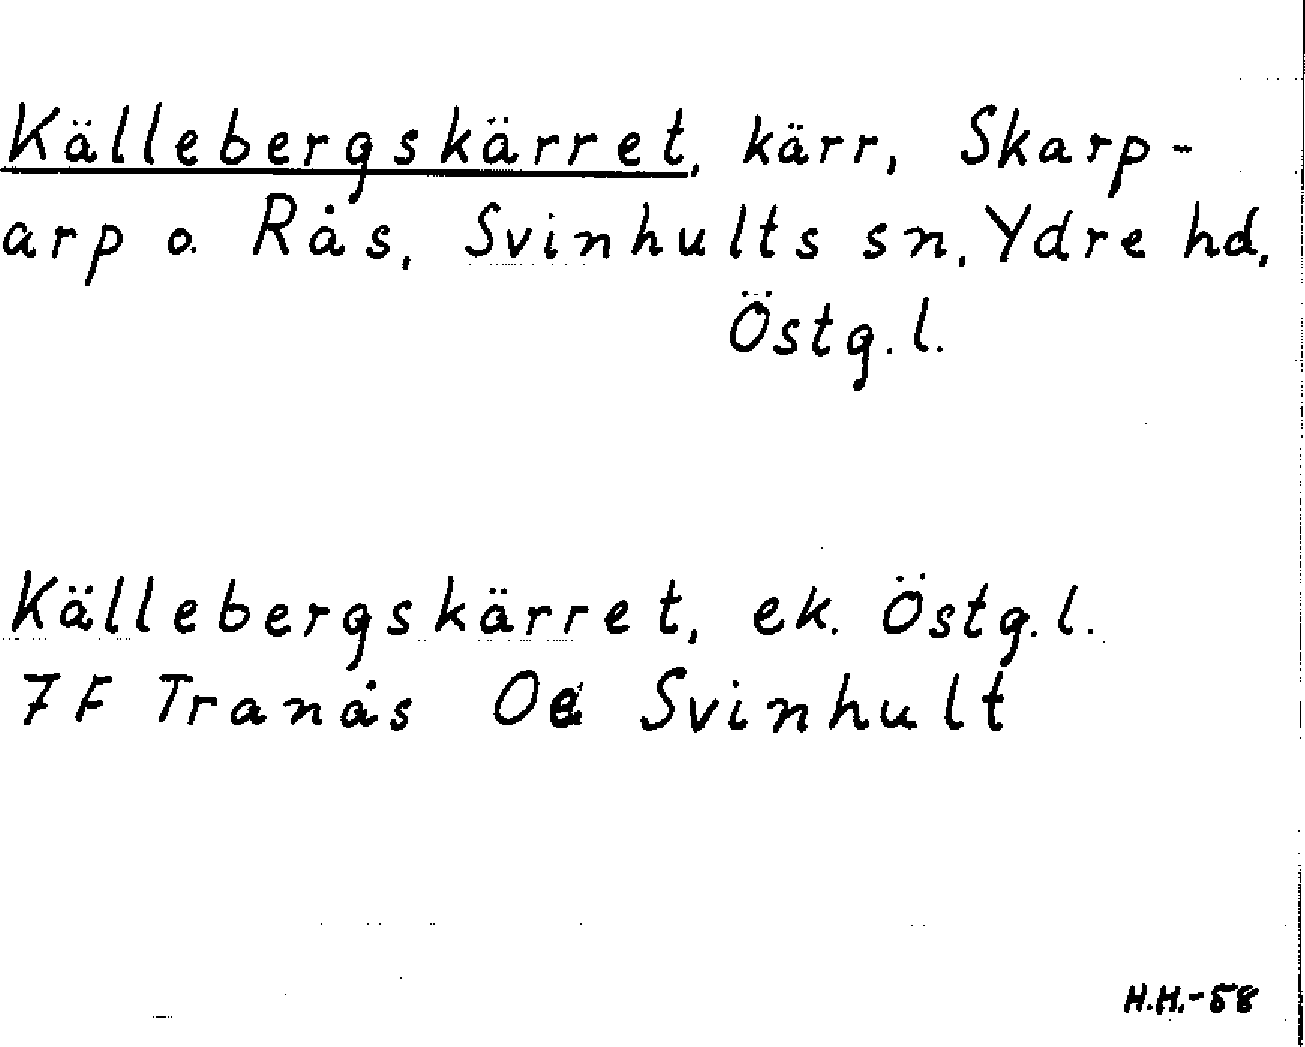 Källebergskärret, kärr, Skarp-
arp o. Rås, Svinhults sn, Ydre hd,
Östg.l.
Källebergskärret, ek. Östg.l.
7F Tranås Oe Svinhult
H.H.-58